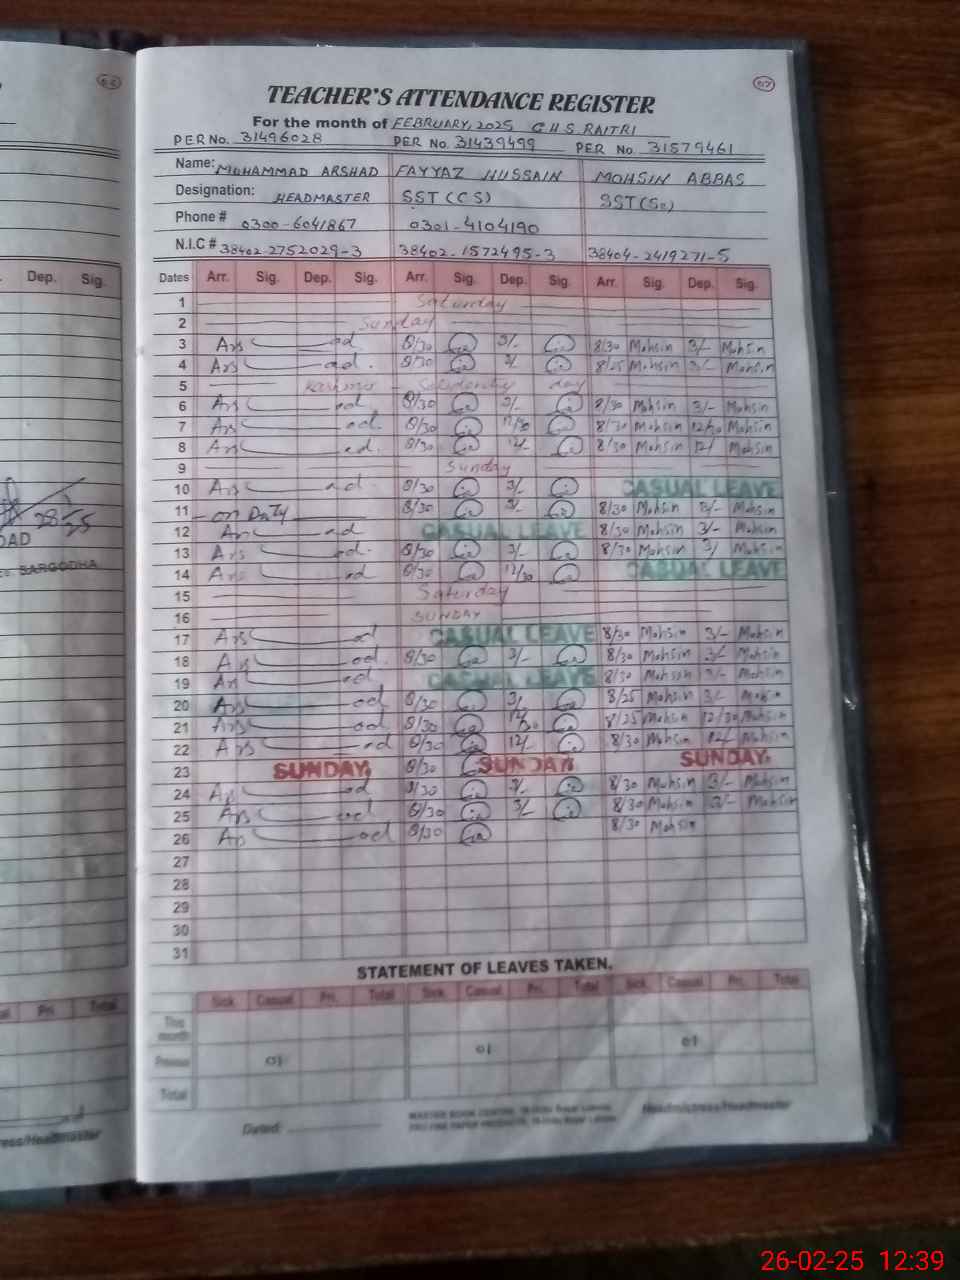 57
TEACHER'S ATTENDANCE REGISTER
For the month of FEBRUARY, 2025 G.H.S. RAITRI
PER No. 31496028 PER No. 31439499 PER No. 31579461
Name: MUHAMMAD ARSHAD FAYYAZ HUSSAIN MOHSIN ABBAS
Designation: HEADMASTER SST (CS) SST(Sc)
Phone # 0300-6041867 0301-4104190
N.I.C # 38402-2752029-3 38402-1572495-3 38404-2419271-5
Dep. Sig. Dates Arr. Sig. Dep. Sig. Arr. Sig. Dep. Sig. Arr. Sig. Dep. Sig.
1 Saturday
2 Sunday
3 8/30 3/- 8/30 Mohsin 3/- Mohsin
4 8/30 3/ 8/25 Mohsin 3/- Mohsin
5 Kashmir day
6 8/30 3/- 8/30 Mohsin 3/- Mohsin
7 8/30 12/30 8/30 Mohsin 12/30 Mohsin
8 8/30 12/- 8/30 Mohsin 12/ Mohsin
9 Sunday
10 8/30 3/- CASUAL LEAVE
11 on Duty 8/30 3/- 8/30 Mohsin 3/- Mohsin
12 CASUAL LEAVE 8/30 Mohsin 3/- Mohsin
13 8/30 3/- 8/30 Mohsin 3/ Mohsin
14 8/30 12/30 CASUAL LEAVE
15 Saturday
16 SUNDAY
17 CASUAL LEAVE 8/30 Mohsin 3/- Mohsin
18 8/30 3/- 8/30 Mohsin 3/- Mohsin
19 CASUAL LEAVE 8/30 Mohsin 3/- Mohsin
20 8/30 3/ 8/25 Mohsin 3/- Mohsin
21 8/30 12/30 8/25 Mohsin 12/30 Mohsin
22 8/30 12/- 8/30 Mohsin 12/ Mohsin
23 SUNDAY 8/30 SUNDAY SUNDAY
24 8/30 3/- 8/30 Mohsin 3/- Mohsin
25 8/30 3/- 8/30 Mohsin 3/- Mohsin
26 8/30 8/30 Mohsin
27
28
29
30
31
SARGODHA
STATEMENT OF LEAVES TAKEN.
Pri. Total Sick Casual Pri. Total Sick Casual Pri. Total Sick Casual Pri. Total
This month
Previous 01 01 01
Total
Dated:
Headmistress/Headmaster
26-02-25 12:39